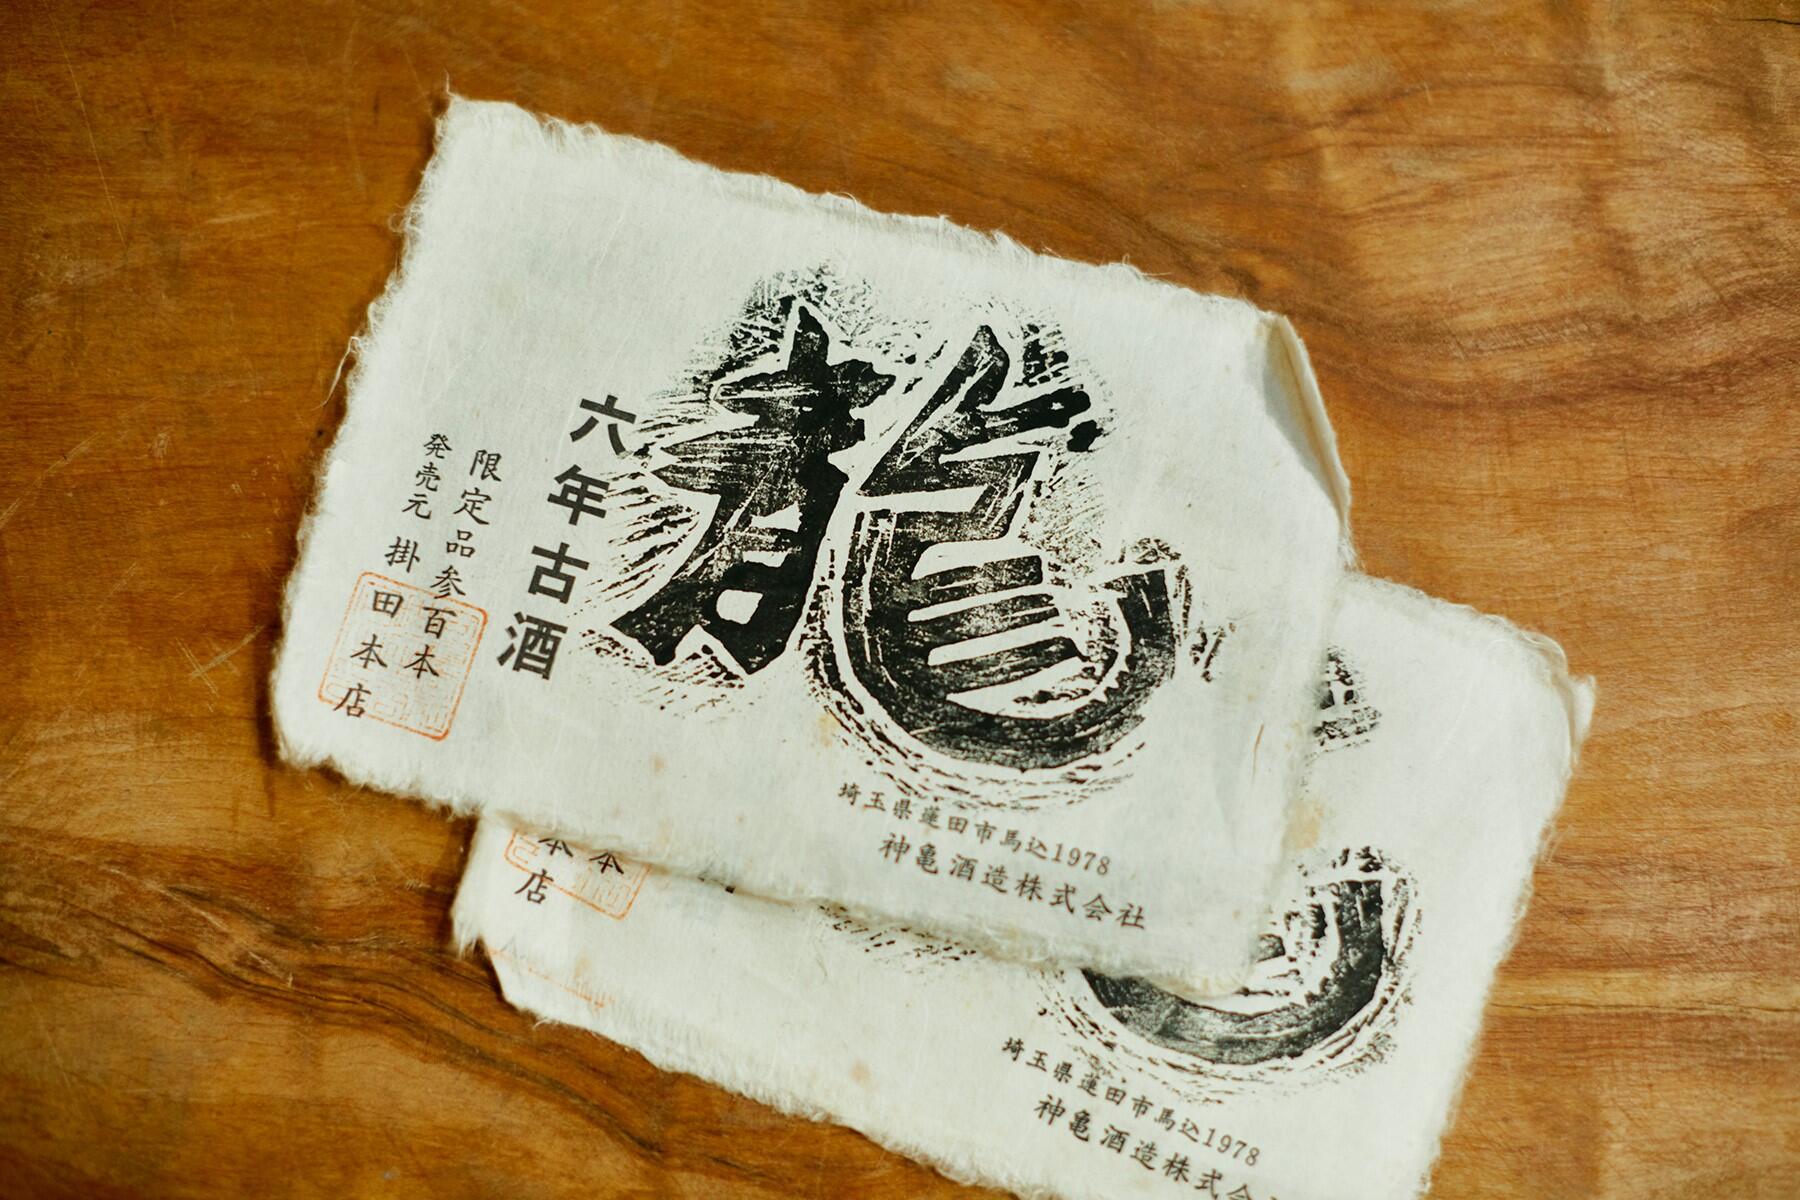 龍
六年古酒
限定品参百本
発売元 掛田本店
埼玉県蓮田市馬込1978
神亀酒造株式会社
本
本店
埼玉県蓮田市馬込1978
神亀酒造株式会